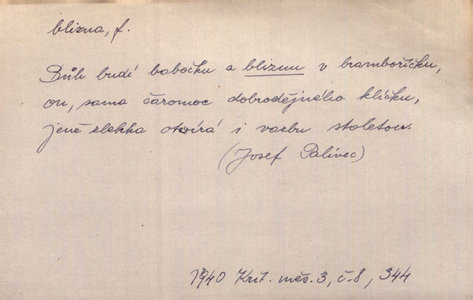 blizna, f.
Bůh budí babočku a bliznu v bramboříčku,
on, sama čaromoc dobrodějného klíčku,
jenž zlehka otvírá i vazbu stoletou.
(Josef Palivec)
1940 Krit. měs. 3, č. 8, 344